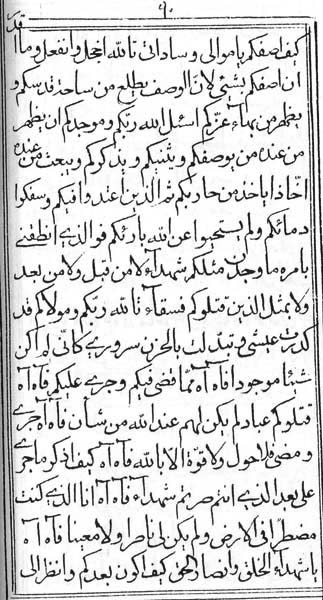 ٩٠
كيف اصفكم يا موالي وساداتي تالله اخجل وانفعل وما اقدر
ان اصفكم بشيئ لان الوصف يطلع من ساحة قدسكم و
يظهر من بهاء عزكم اسئل الله ربكم وموجدكم ان يظهر
من عنده من يوصفكم ويثنيكم ويذكركم ويبعث من عنده
اخاذا ياخذ من حاربكم ثم الذين اعتدوا فيكم وسفكوا
دمائكم ولم يستحيوا عن الله بارئكم فوالذي انطقني
بامره ما وجدن مثلكم شهدآء لا من قبل ولا من بعد
ولا بمثل الذين قتلوكم فسقاء تالله ربكم ومولاكم قد
كدرت عيشي وتبدلت بالحزن سروري كاني لم اكن
شيئا موجودا فاه آه مما قضى فيكم وجرى عليكم فاه آه
قتلوكم عباد لم يكن لهم عند الله من شأن فاه آه جرى
ومضى فلاحول ولا قوة الا بالله فاه آه كيف اذكر ما جرى
على بعد الذي انتم صرتم شهداء فاه آه انا الذي كنت
مضطرا في الارض ولم يكن لي ناصرا ولا معينا فاه آه
يا شهدآء الخلق وانصار الحق كيف اكون بعدكم وانظر الى